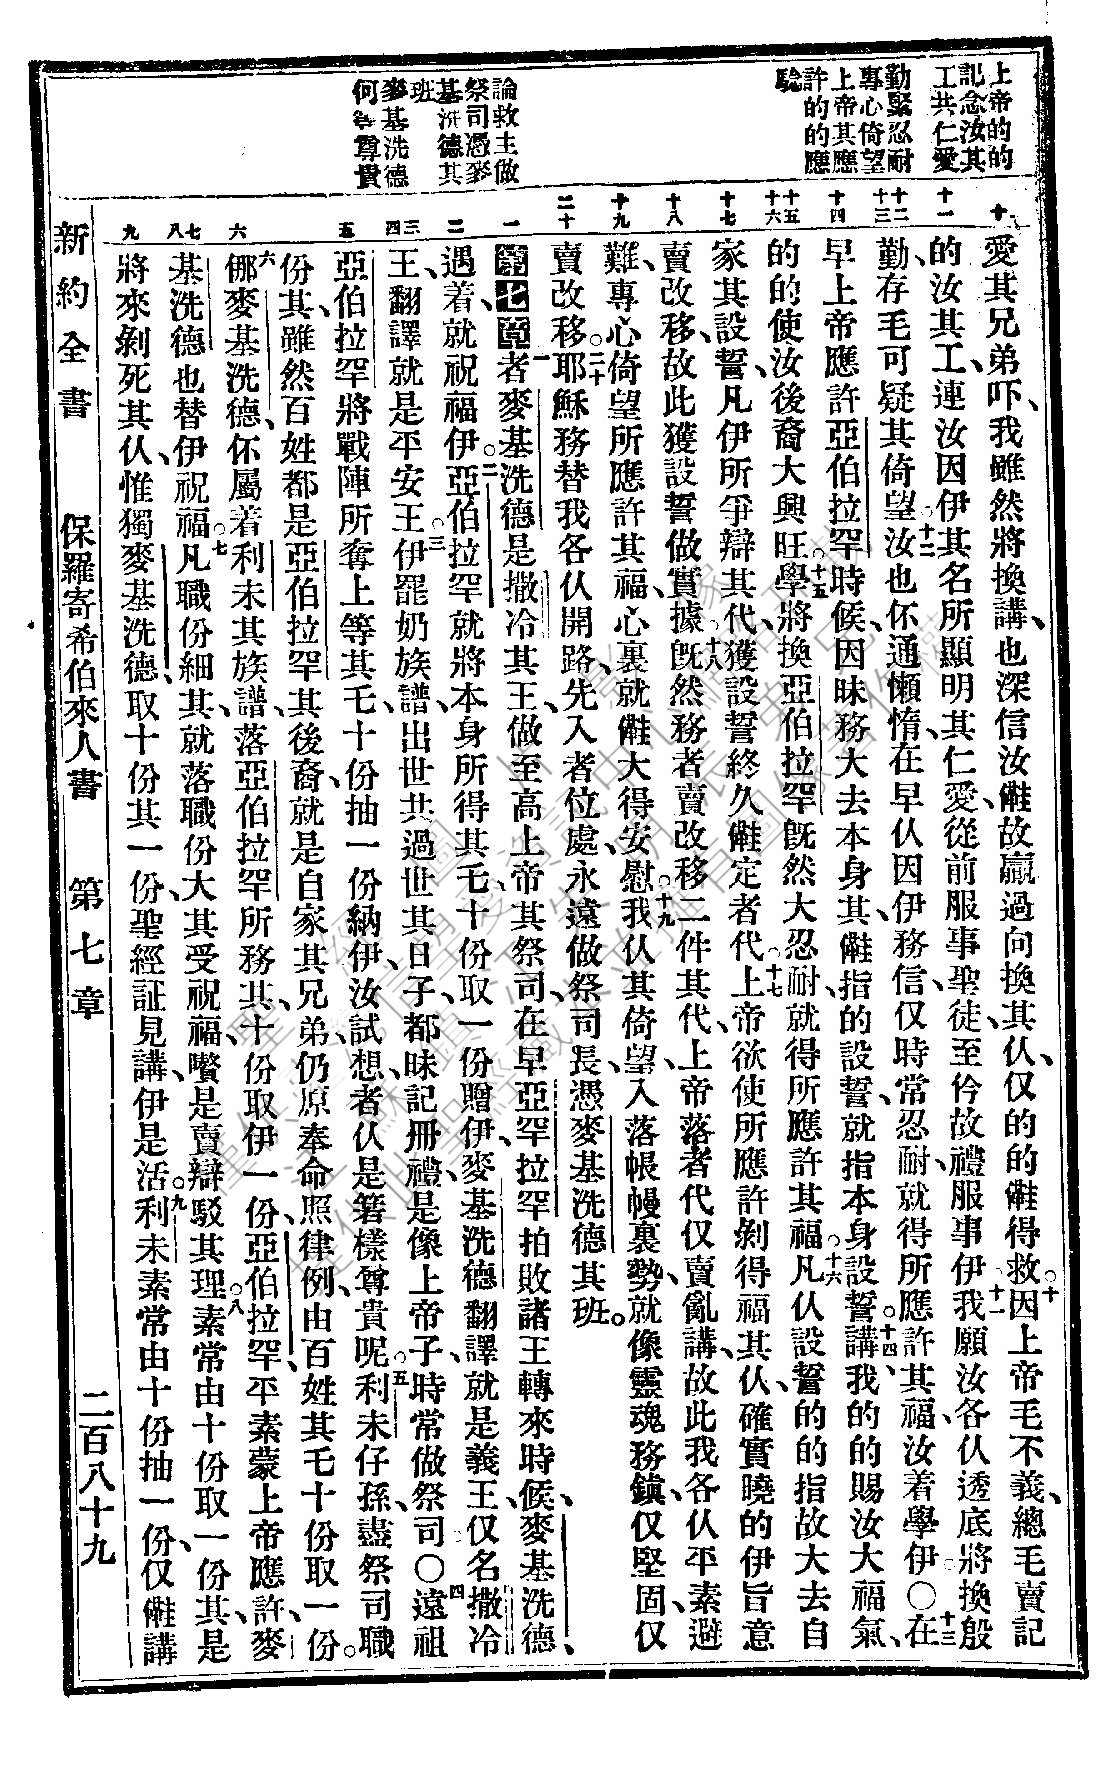 上帝的的
記念汝其
工共仁愛
勤緊忍耐
專心倚望
上帝其應
許的的應
驗
論救主做
祭司憑麥
基洗德其
班
麥基洗德
何等尊貴
十 愛其兄弟吓、我雖然將換講、也深信汝𠆧故贏過向換其、仈仅的的𠆧得救。十因上帝毛不義、總毛賣記
十一 的汝其工、連汝因伊其名所顯明其仁愛、從前服事聖徒、至仱故禮服事伊。十一我願汝各仈透底將換殷
十二 十三 勤、存毛可疑其倚望。十二汝也伓通懶惰、在早仈因伊務信、仅時常忍耐、就得所應許其福、汝着學伊。〇十三在
十四 早上帝應許亞伯拉罕時候、因昧務大去本身其𠆧指的設誓、就指本身設誓講、十四我的的賜汝大福氣、
十五 十六 的的使汝後裔大興旺。十五學將換亞伯拉罕旣然大忍耐、就得所應許其福。十六凡仈設誓的的指故大去自
十七 家其、設誓、凡伊所爭辯其代、獲設誓終久𠆧定者代。十七上帝欲使所應許剝得福其仈、確實曉的伊旨意
十八 賣改移、故此獲設誓做實據。十八旣然務者賣改移二件其代、上帝落者代仅賣亂講、故此我各仈平素避
十九 難、專心倚望所應許其福、心裏就𠆧大得安慰。十九我仈其倚望、入落帳幔裏勢、就像靈魂務鎮、仅堅固仅
二十 賣改移。二十耶穌務替我各仈開路、先入者位處、永遠做祭司長、憑麥基洗德其班。
一 第七章 一者麥基洗德是撒冷其王、做至高上帝其祭司、在早亞罕拉罕拍敗諸王轉來時候、麥基洗德、
二 遇着、就祝福伊。二亞伯拉罕就將本身所得其乇十份取一份贈伊、麥基洗德翻譯就是義王、仅名撒冷
三 四 王、翻譯就是平安王。三伊罷奶族譜、出世共過世其日子、都昧記册禮、是像上帝子、時常做祭司。〇四遠祖
五 亞伯拉罕將戰陣所奪上等其乇十份抽一份納伊、汝試想者仈是箬樣尊貴呢。五利未仔孫、盡祭司職
份其、雖然百姓都是亞伯拉罕其後裔、就是自家其兄弟、仍原奉命照律例、由百姓其乇十份取一份。
六 六㑚麥基洗德、伓屬着利未其族譜、落亞伯拉罕所務其、十份取伊一份、亞伯拉罕、平素蒙上帝應許、麥
七 八 基洗德也替伊祝福。七凡職份細其、就落職份大其受祝福、嚽是賣辯駁其理。八素常由十份取一份其、是
九 將來剝死其仈、惟獨麥基洗德、取十份其一份、聖經証見講、伊是活。九利未素常由十份抽一份、仅𠆧講
新約全書
保羅寄希伯來人書
第七章
二百八十九